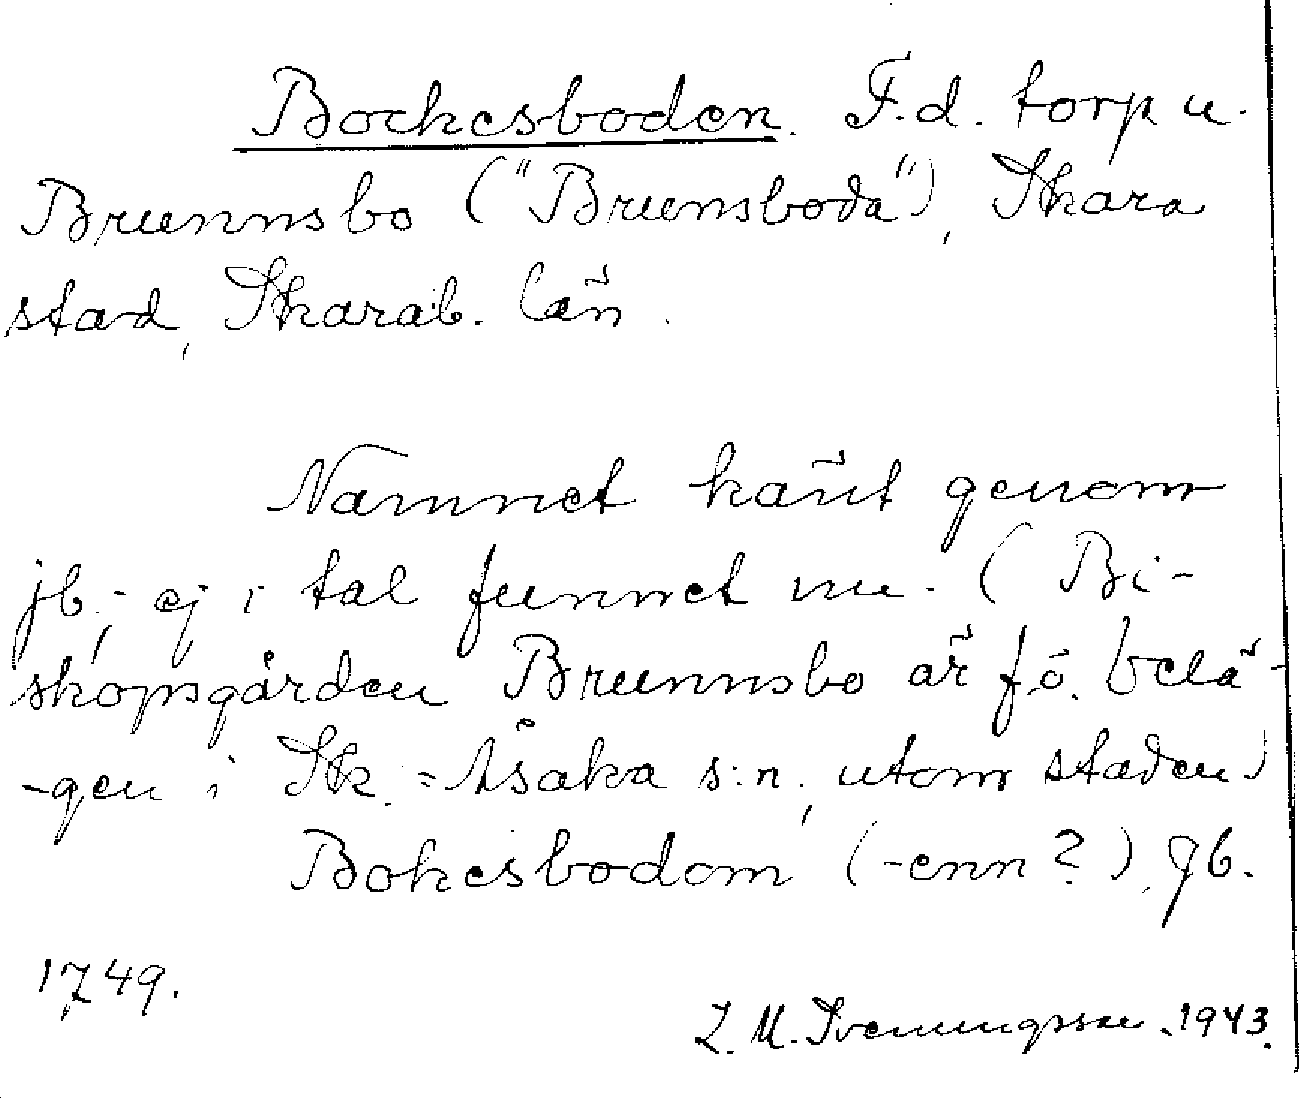 Bockesboden. F.d. torp u.
Brunnsbo ("Brunsboda"), Skara
stad, Skarab. län.
Namnet känt genom
jb.; ej i tal funnet nu. (Bi-
skopsgården Brunnsbo är f.ö. belä-
-gen i Sk.=Åsaka s:n, utom staden)
Bokesbodom (-enn?), Jb.
1749.
Z. M. Sveningsson. 1943.